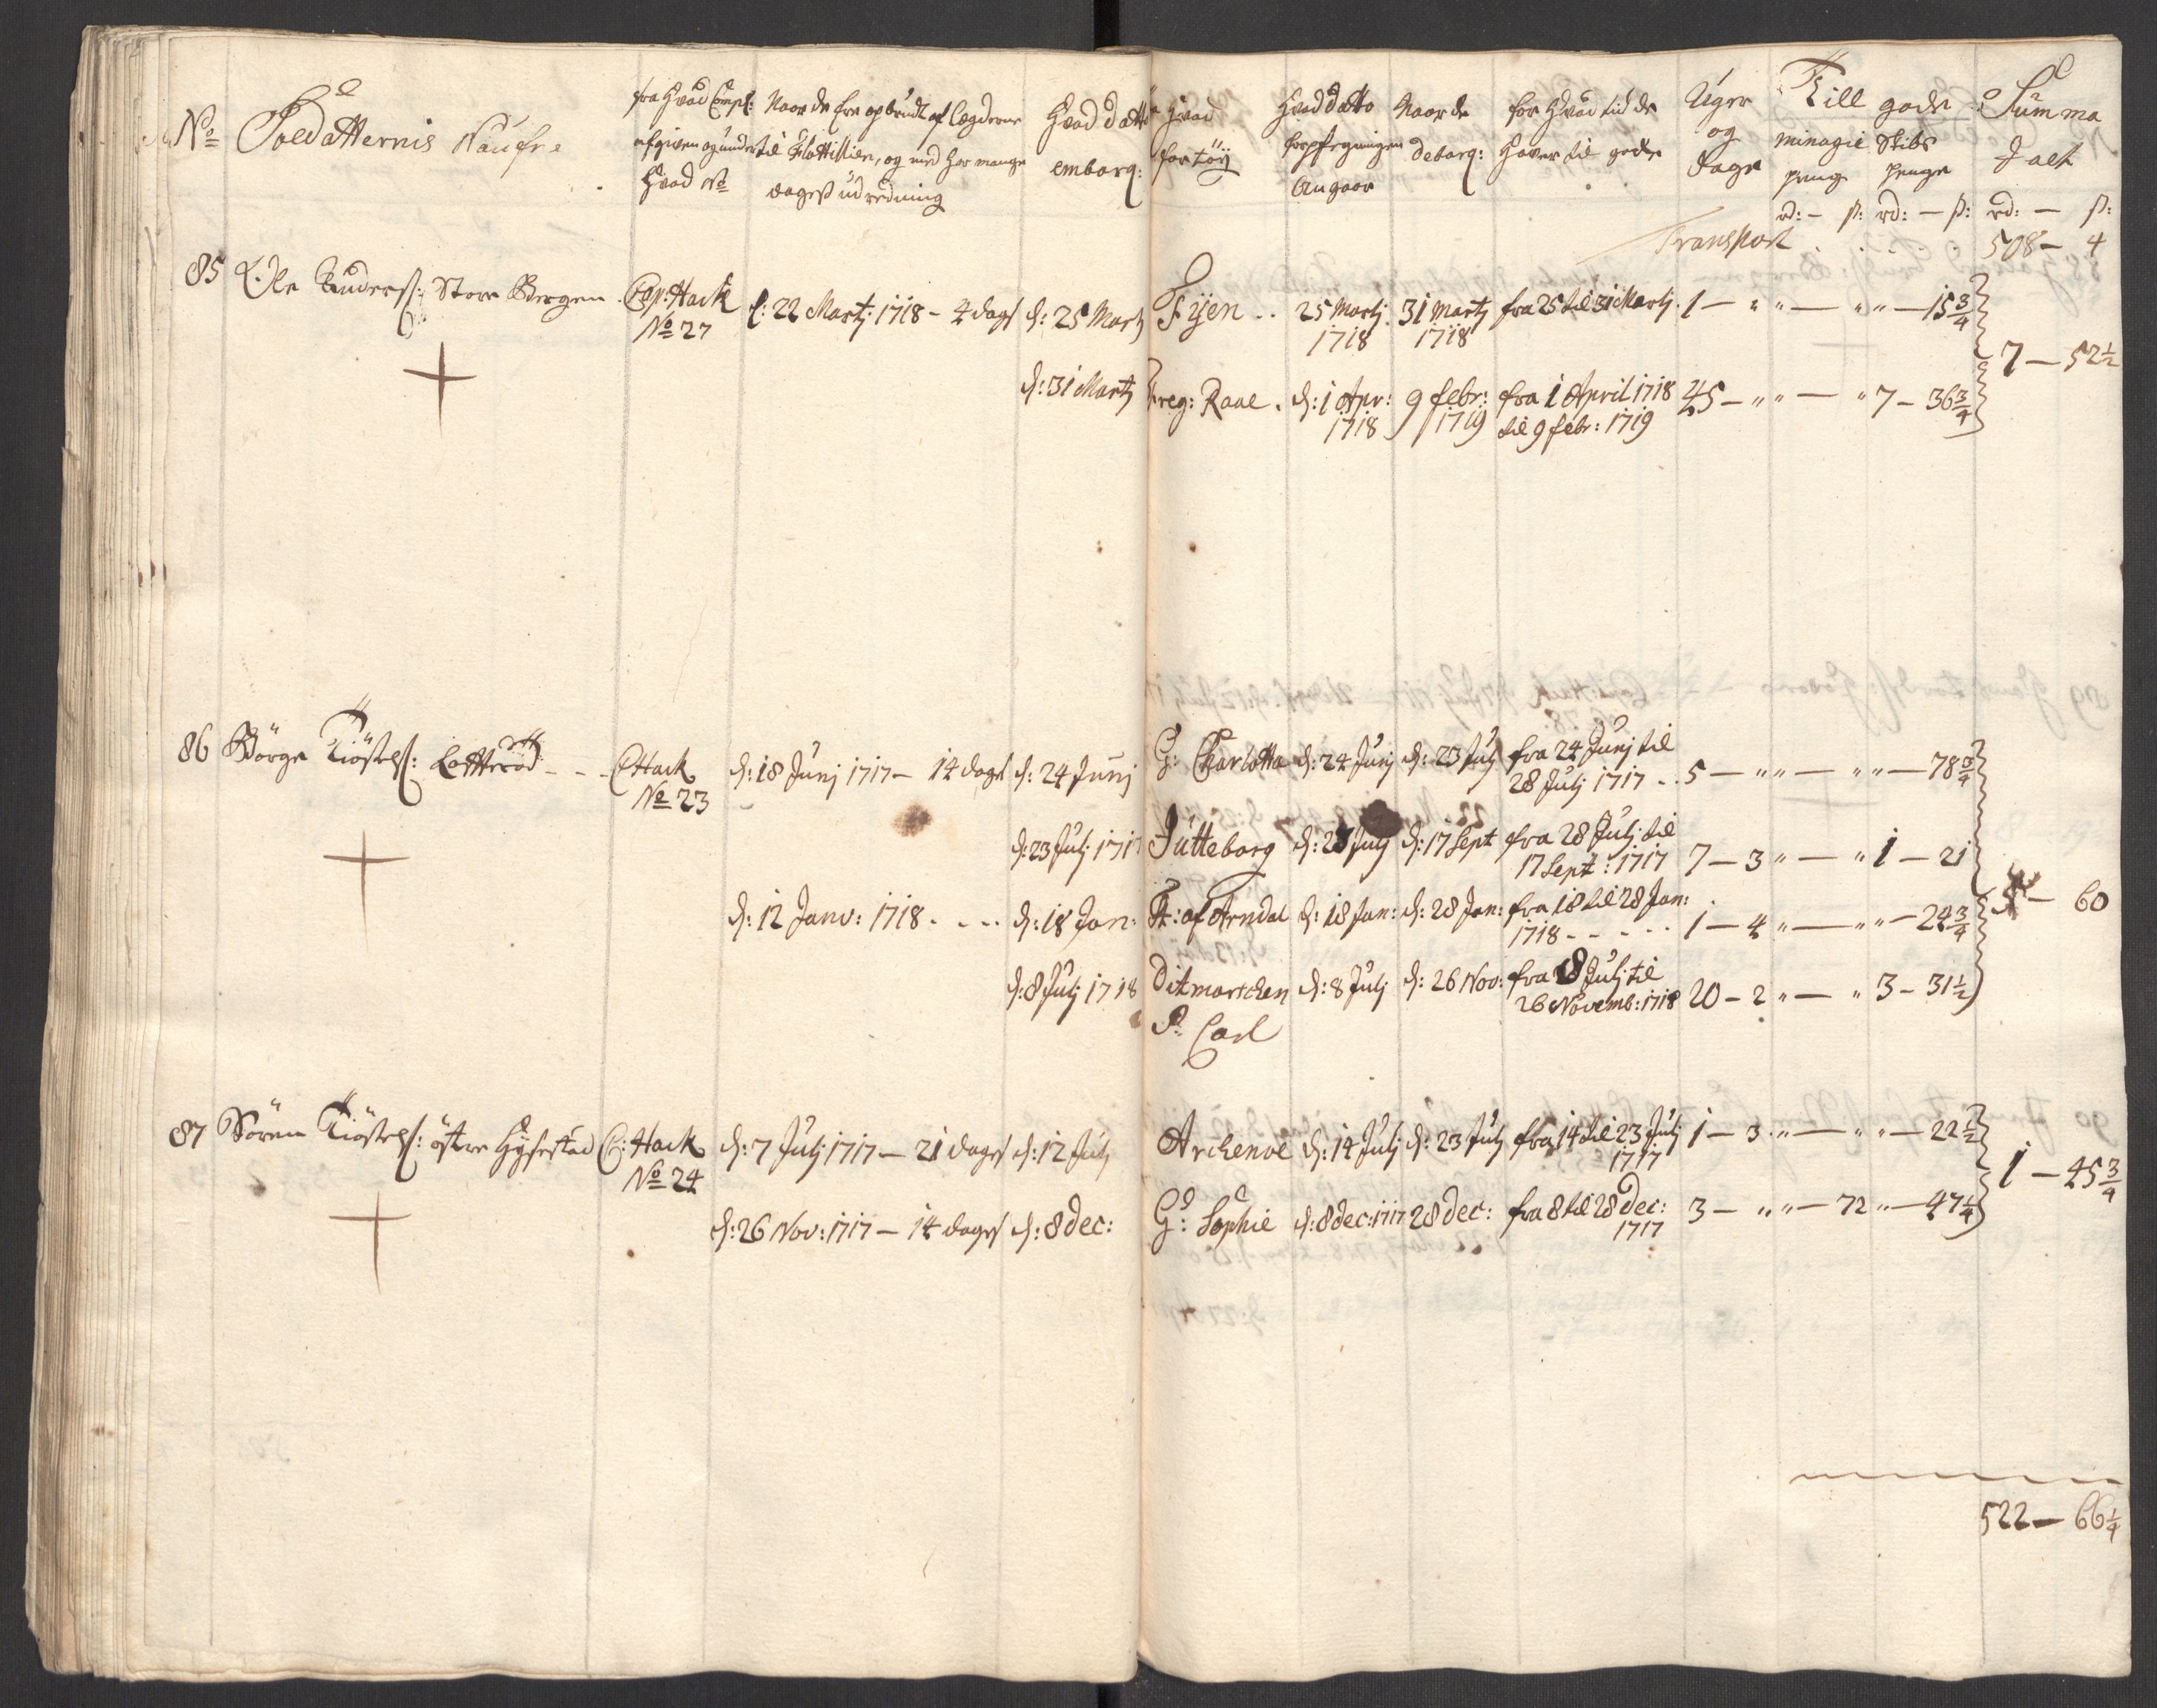 No Soldatternis Naufne
fra Hvad Comp: afgiven og under Hvad No
Naar de ere opbrudt af Lægderne til Flottillien, og med hor mange dages udredning
Hvad datto embarq:
Hvad fartöÿ
Hvad datto forpflegningen Angaar
Naar de debarq:
for Hvad tid de haver til gode
Uger og dage
Till gode minagie penge Skibs penge
Summa Jalt
rd: – s: rd: – s: rd: – s:
Transport . . . 508 – 4
85 Ole Anders: Store Bergen. Cap: Hack No 27 d: 22 Martj 1718 – 4 dags d: 25 Martj Fÿen .. 25 Martj 1718 31 Martj 1718 fra 25 til 31 Martj. 1 – " " – " " – 15 3/4
7 – 52 1/2
d: 31 Martj freg: Raae . d: 1 Apr: 1718 9 febr: 1719 fra 1 April 1718 til 9 febr: 1719 45 – " " – " 7 – 36 3/4
86 Börge Kiöstels: Løfteröd - - - C Hack No 23 d: 18 Junj 1717 – 14 dags d: 24 Junj G: Charlotta d: 24 Junj d: 23 Julj fra 24 Junj til 28 Julj 1717 .. 5 – " " – " " – 78 3/4
d: 23 Julj 1717 Jutteborg d: 28 Julj d: 17 Sept fra 28 Julj til 17 Sept: 1717 7 – 3 " – " 1 – 21
d: 12 Janv: 1718 . - .. d: 18 Jan: Pr: af Arndal d: 18 Jan: d: 28 Jan: fra 18 til 28 Jan: 1718 - - - - - 1 – 4 " – " " – 24 3/4
– 60
d: 8 Julj 1718 Ditmarschen d: 8 Julj d: 26 Nov: fra 8 Julj til 26 Novemb: 1718 20 – 2 " – " 3 – 31 1/2
Pr: Carl
87 Sören Kiöstels: östre Hÿfestad C: Hack No 24 d: 7 Julj 1717 – 21 dages d: 12 Julj Archenoe d: 14 Julj d: 23 Julj fra 14 til 23 Julj 1717 1 – 3 " – " " – 22 1/2
1 – 45 3/4
d: 26 Nov: 1717 – 14 dages d: 8 dec: G: Sophie d: 8 dec: 1717 28 dec: fra 8 til 28 Dec: 1717 3 – " " – 72 " – 47 1/4
522 – 66 1/4